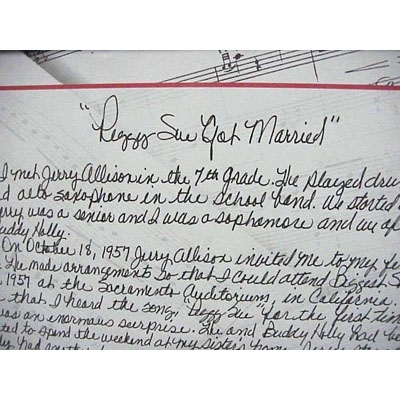 "Peggy Sue Got Married"
I met Jerry Allison in the 7th Grade. He played dru
d alto saxophone in the school band. We started
erry was a senior and I was a sophomore and we of
uddy Holly.
On October 18, 1957 Jerry Allison invited me to my fi
. He made arrangements so that I could attend Biggest S
, 1957 at the Sacramento Auditorium, in California.
that I heard the song, "Peggy Sue" for the first tim
as an enormous surprise. He and Buddy Holly had be
ted to spend the weekend at my sister's home